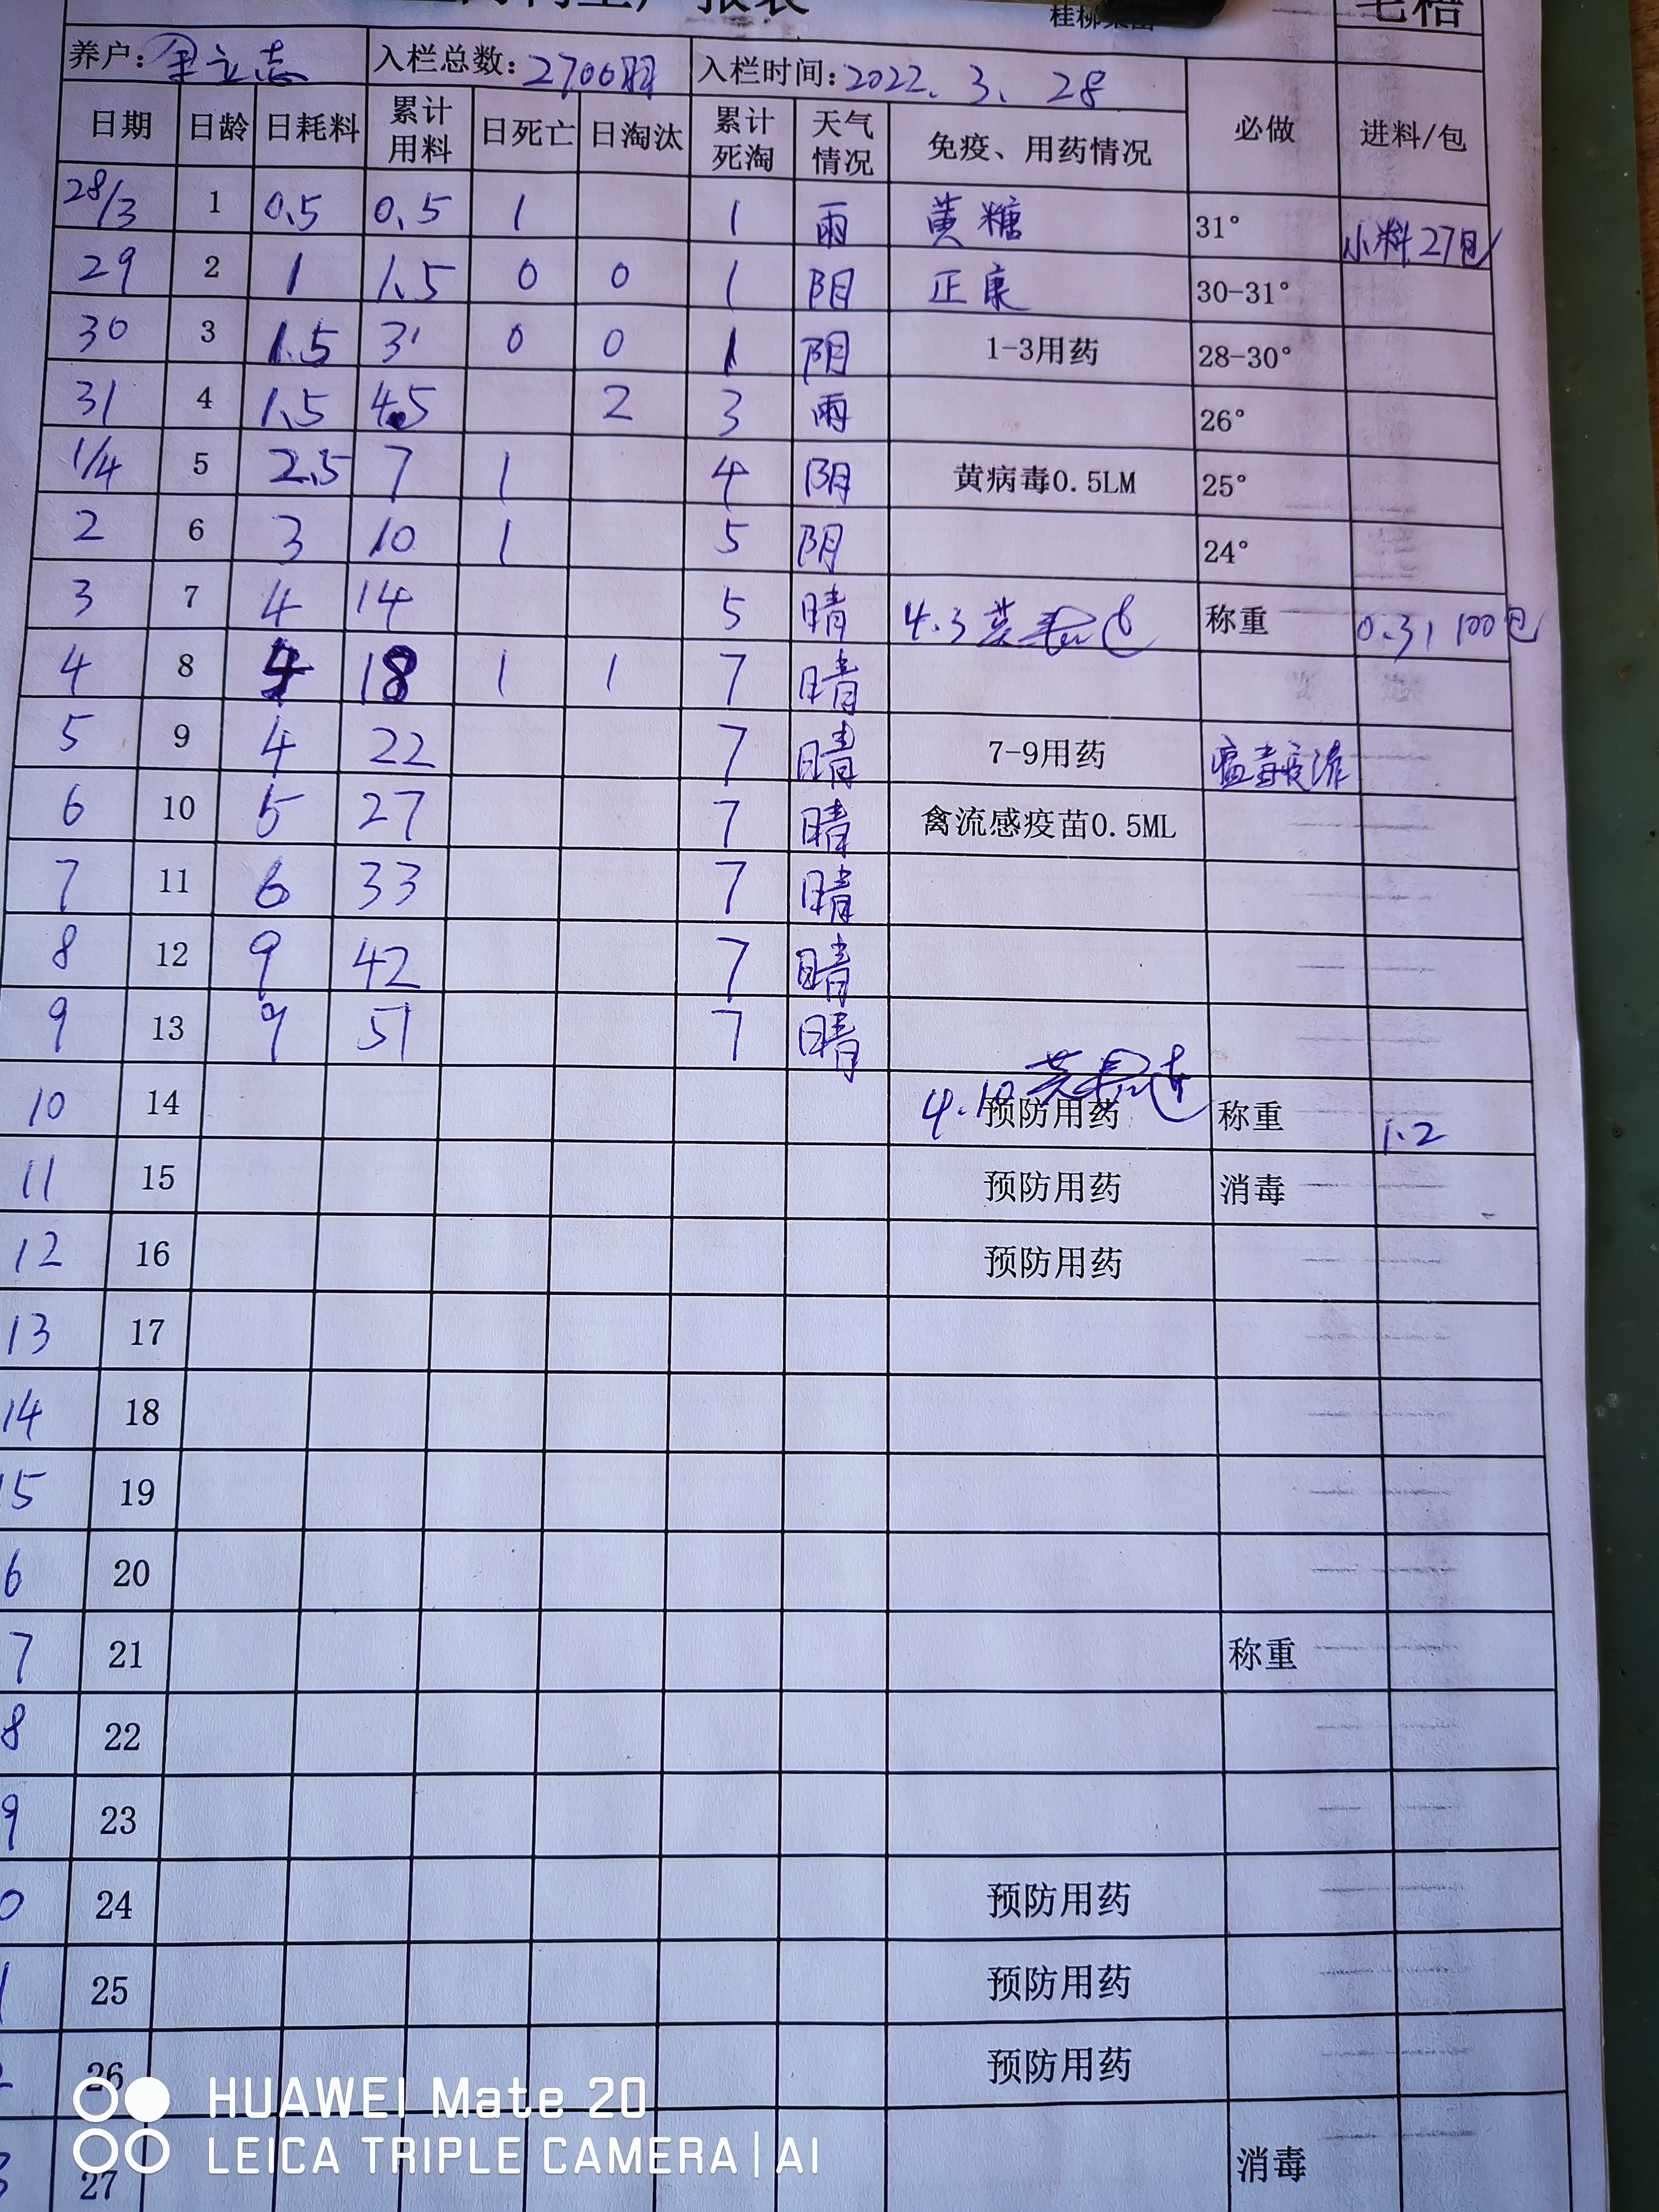 养户: 立志 入栏总数: 2700羽 入栏时间: 2022. 3. 28
日期 日龄 日耗料 累计用料 日死亡 日淘汰 累计死淘 天气情况 免疫、用药情况 必做 进料/包
28/3 1 0.5 0.5 1 1 雨 黄糖 31° 小料27包
29 2 1 1.5 0 0 1 阴 正康 30-31°
30 3 1.5 3 0 0 1 阴 1-3用药 28-30°
31 4 1.5 4.5 2 3 雨 26°
1/4 5 2.5 7 1 4 阴 黄病毒0.5LM 25°
2 6 3 10 1 5 阴 24°
3 7 4 14 5 晴 4.3 称重 0.31 100包
4 8 4 18 1 1 7 晴
5 9 4 22 7 晴 7-9用药
6 10 5 27 7 晴 禽流感疫苗0.5ML
7 11 6 33 7 晴
8 12 9 42 7 晴
9 13 9 51 7 晴
10 14 4.10 预防用药 称重 1.2
11 15 预防用药 消毒
12 16 预防用药
13 17
14 18
15 19
6 20
7 21 称重
8 22
9 23
0 24 预防用药
1 25 预防用药
26 预防用药
3 27 消毒
HUAWEI Mate 20
LEICA TRIPLE CAMERA | AI